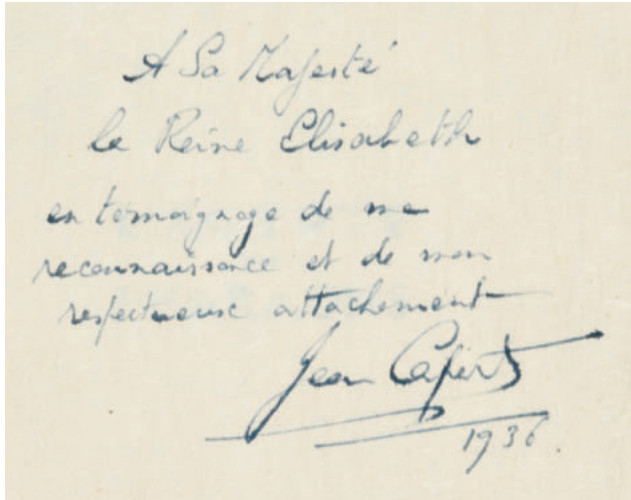 A Sa Majesté
la Reine Elisabeth
en témoignage de ma
reconnaissance et de mon
respectueux attachement
Jean Capart
1936.